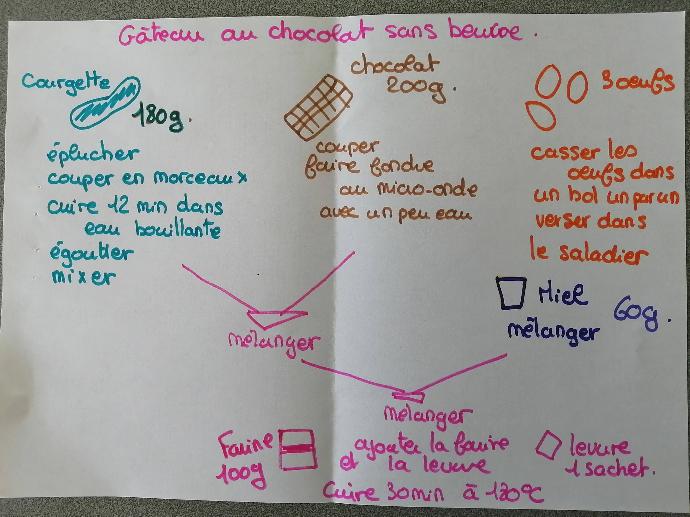 Gâteau au chocolat sans beurre.
Courgette
180g.
éplucher
couper en morceaux
cuire 12 min dans
eau bouillante
égoutter
mixer
chocolat
200g.
couper
faire fondre
au micro-onde
avec un peu eau
3 oeufs
casser les
oeufs dans
un bol un par un
verser dans
le saladier
Miel 60g.
mélanger
mélanger
mélanger
Farine
100g
ajouter la farine
et la levure
levure
1 sachet.
Cuire 30min à 180°C